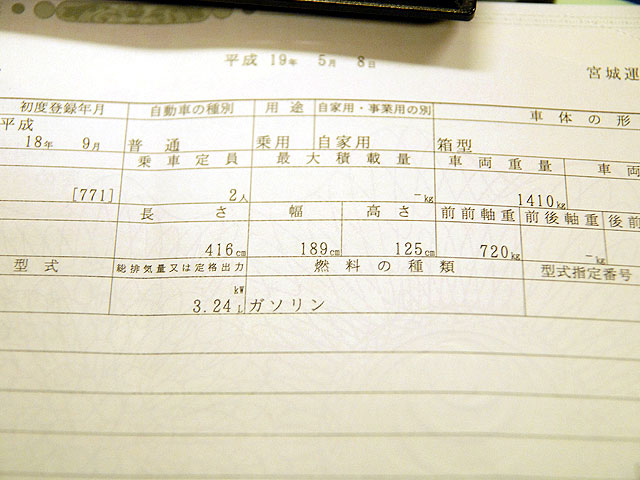 平成 19年 5月 8日
宮城運
初度登録年月 自動車の種別 用途 自家用・事業用の別 車体の形
平成
18年 9月 普通 乗用 自家用 箱型
乗車定員 最大積載量 車両重量 車両
[771] 2人 -kg 1410kg
長さ 幅 高さ 前前軸重 前後軸重 後前
416cm 189cm 125cm 720kg -kg
型式 総排気量又は定格出力 燃料の種類 型式指定番号
kW
3.24L ガソリン